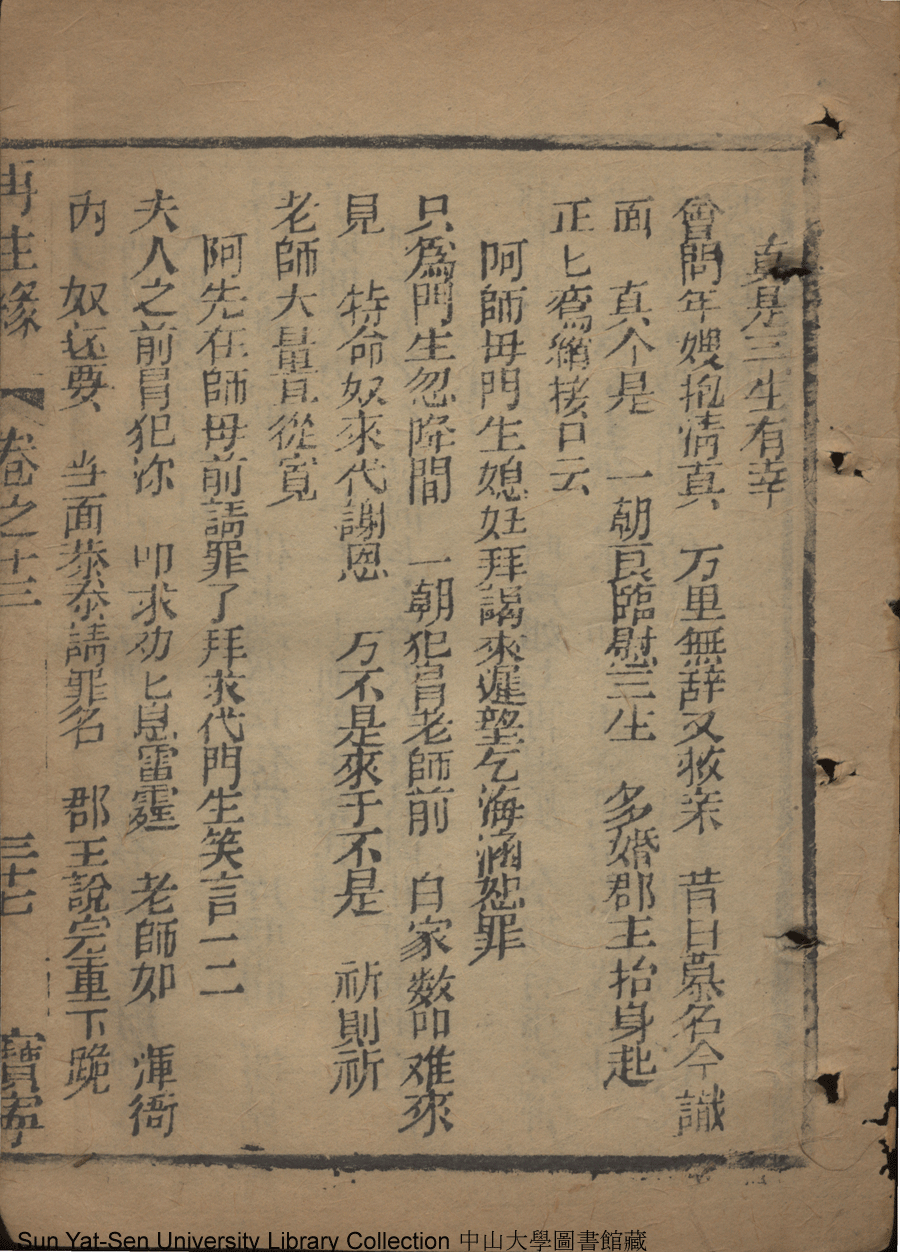 真是三生有幸
曾問年嫂抱情真　万里無辞又救亲　昔日慕名今識
面　真个是　一朝良臨慰三生　多婚郡主抬身起
正匕鸞絹接口云
阿師母門生媳妇拜謁來遲望乞海涵恕罪
只為門生忽降間　一朝犯冒老師前　自家数叩难來
見　特命奴來代謝恩　万不是來于不是　祈則祈
老師大量直從寬
阿先在師母前請罪了拜求代門生笑言一二
夫人之前冒犯沵　叩求劝匕息雷霆　老師如　渾衙
内　奴还要　当面恭恭請罪名　郡王說完重下跪
再生緣　卷之十三　三十七　寶寧
Sun Yat-Sen University Library Collection 中山大學圖書館藏